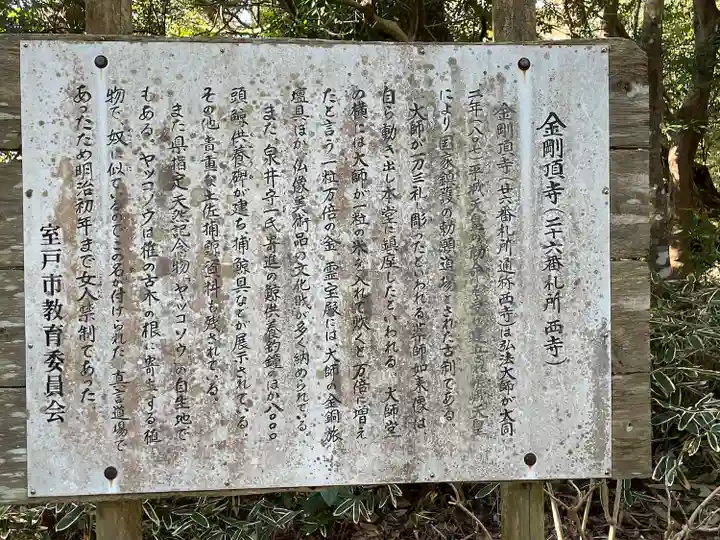 金剛頂寺(二十六番札所 西寺)
金剛頂寺(廿六番札所)通称西寺は弘法大師が大同
二年(八〇七)平城天皇の勅命
により国家鎮護の勅願道場とされた古刹である。
大師が一刀三礼で彫ったといわれる薬師如来像は、
自ら動き出し本堂に鎮座したといわれる。大師堂
の横には大師が一粒の米を入れて吹くと万倍に増え
たと言う一粒万倍の釜、霊宝殿には、大師の金銅旅
壇具ほか仏像美術品の文化財が多く納められている。
また、泉井守一氏寄進の鯨供養釣鐘のほか八〇〇〇
頭鯨供養碑が建ち捕鯨具などが展示されている。
その他、貴重な土佐捕鯨資料も残されている。
また県指定天然記念物「ヤッコソウ」の自生地で
もある。ヤッコソウは椎の古木の根に寄生する植
物で、奴に似ているのでこの名が付けられた。真言道場で
あったため明治初年まで女人禁制であった。
室戸市教育委員会